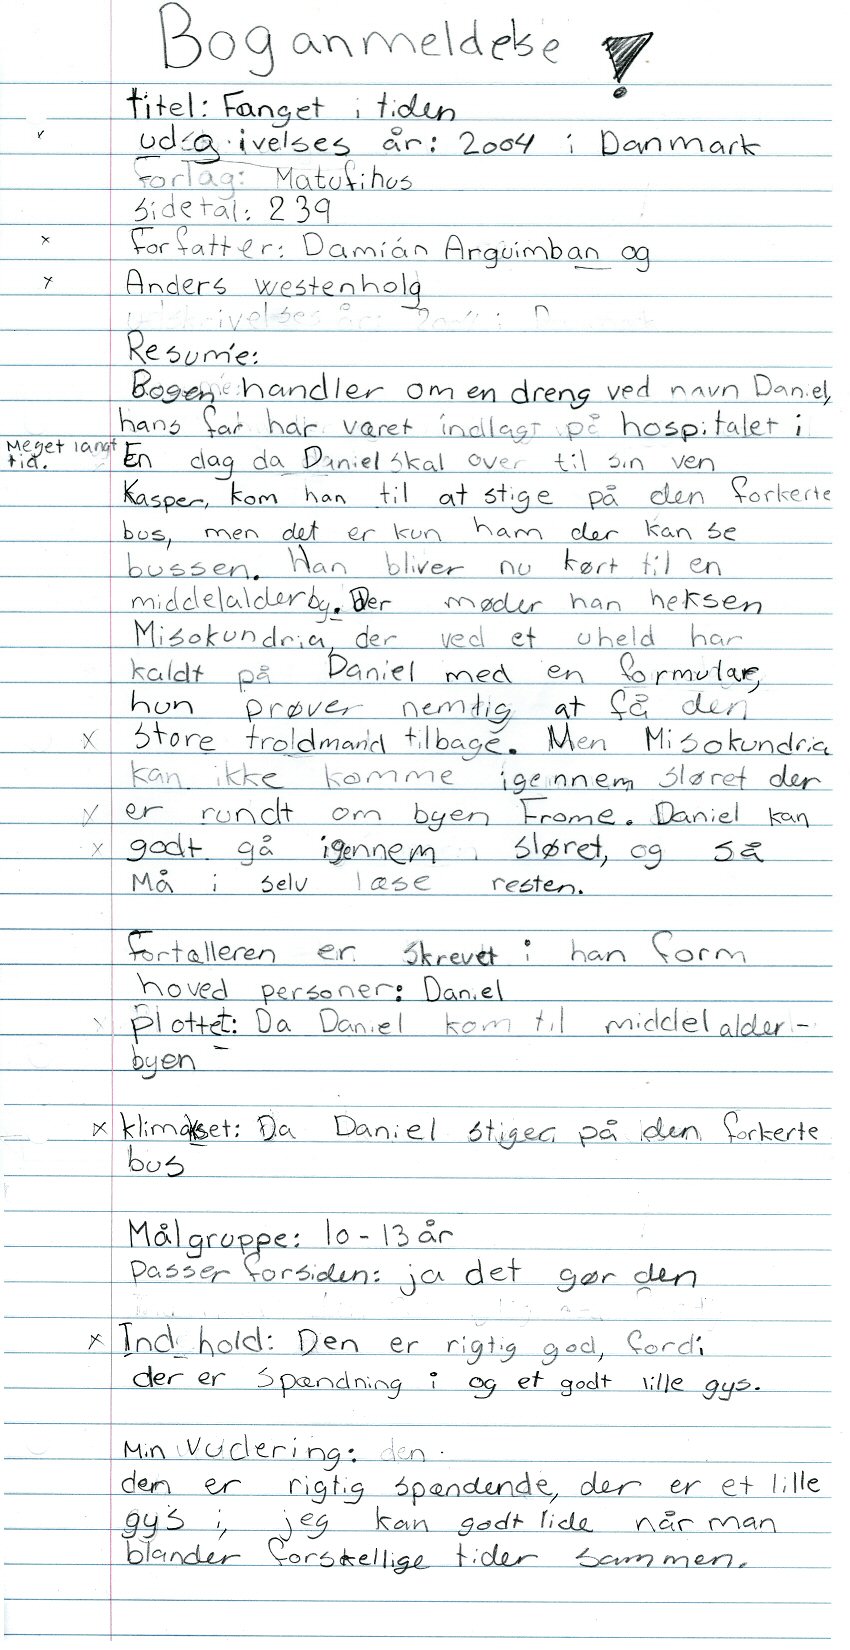 Boganmeldelse !
titel: Fanget i tiden
udgivelses år: 2004 i Danmark
forlag: Matufihus
sidetal: 239
forfatter: Damián Arguimban og
Anders westenholg
Resumé:
Bogen handler om en dreng ved navn Daniel,
hans far har været indlagt på hospitalet i
Meget langt
tid.
En dag da Daniel skal over til sin ven
Kasper, kom han til at stige på den forkerte
bus, men det er kun ham der kan se
bussen. Han bliver nu kørt til en
middelalderby. Der møder han heksen
Misokundria, der ved et uheld har
kaldt på Daniel med en formular,
hun prøver nemtig at få den
store troldmand tilbage. Men Misokundria
kan ikke komme igennem sløret der
er rundt om byen Frome. Daniel kan
godt gå igennem sløret, og så
Må i selv læse resten.
fortælleren er skrevet i han form
hoved personer: Daniel
plottet: Da Daniel kom til middelalder-
byen
klimakset: Da Daniel stiger på den forkerte
bus
Målgruppe: 10-13 år
passer forsiden: ja det gør den
Ind hold: Den er rigtig god, fordi
der er spændning i og et godt lille gys.
Min Vudering: den
den er rigtig spændende, der er et lille
gys i, jeg kan godt lide når man
blander forskellige tider sammen.